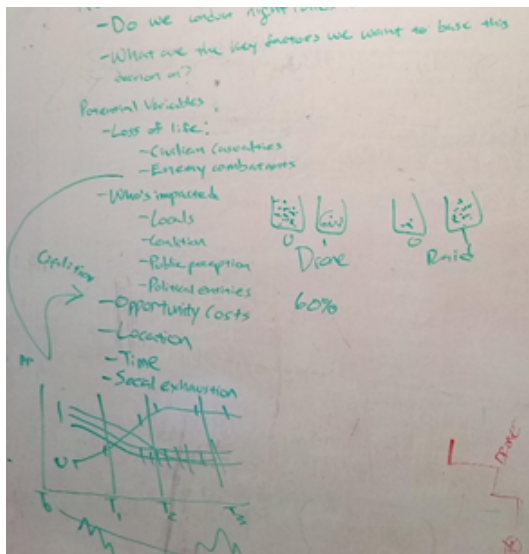 - Do we conduct night
- What are the key factors we want to base this
decision on?
Potential Variables:
- Loss of life:
- Civilian Casualties
- Enemy combatants
- Who's impacted
- Locals
- Coalition
- Public perception
- Political entities
- Opportunity Costs
- Location
- Time
- Social exhaustion
Coalition
Drone
Raid
60%
T₁ T₂